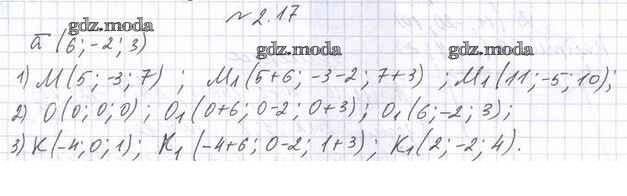 № 2.17
gdz.moda
ā (6; -2; 3)
gdz.moda gdz.moda
1) M(5; -3; 7) ; M₁(5+6; -3-2; 7+3) ; M₁(11; -5; 10);
2) O(0; 0; 0); O₁(0+6; 0-2; 0+3); O₁(6; -2; 3);
3) K(-4; 0; 1); K₁(-4+6; 0-2; 1+3); K₁(2; -2; 4).